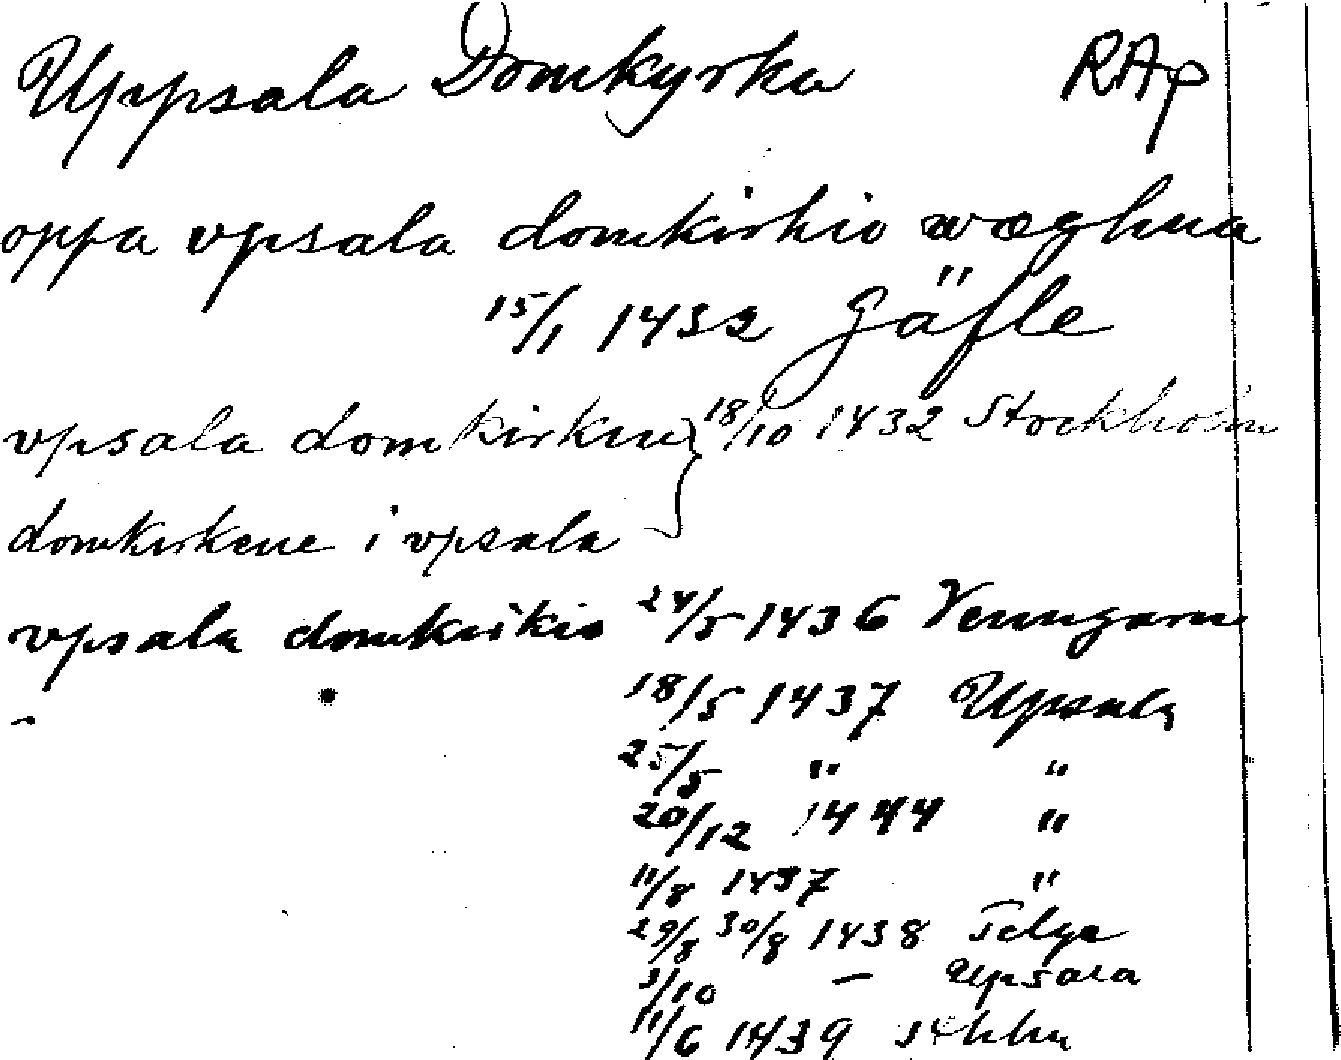 Uppsala Domkyrka RAp
oppa vpsala domkirkio wæghna
15/1 1432 Gäfle
vpsala domkirkene } 18/10 1432 Stockholm
domkirkene i vpsala
vpsala domkirkio 24/5 1436 Venngarn
18/5 1437 Upsala
25/5 " "
20/12 1444 "
11/8 1437 "
29/8 30/8 1438 Telge
3/10 – Upsala
11/6 1439 Sthlm